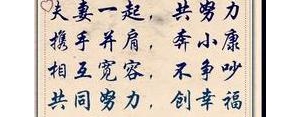 夫妻一起，共努力
携手并肩，奔小康
相互宽容，不争吵
共同努力，创幸福